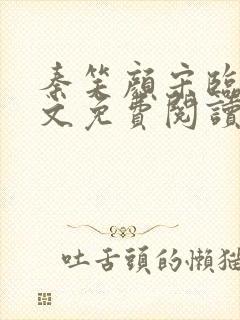 秦笑顏宋臨
文免費閱讀
吐舌頭的懶貓